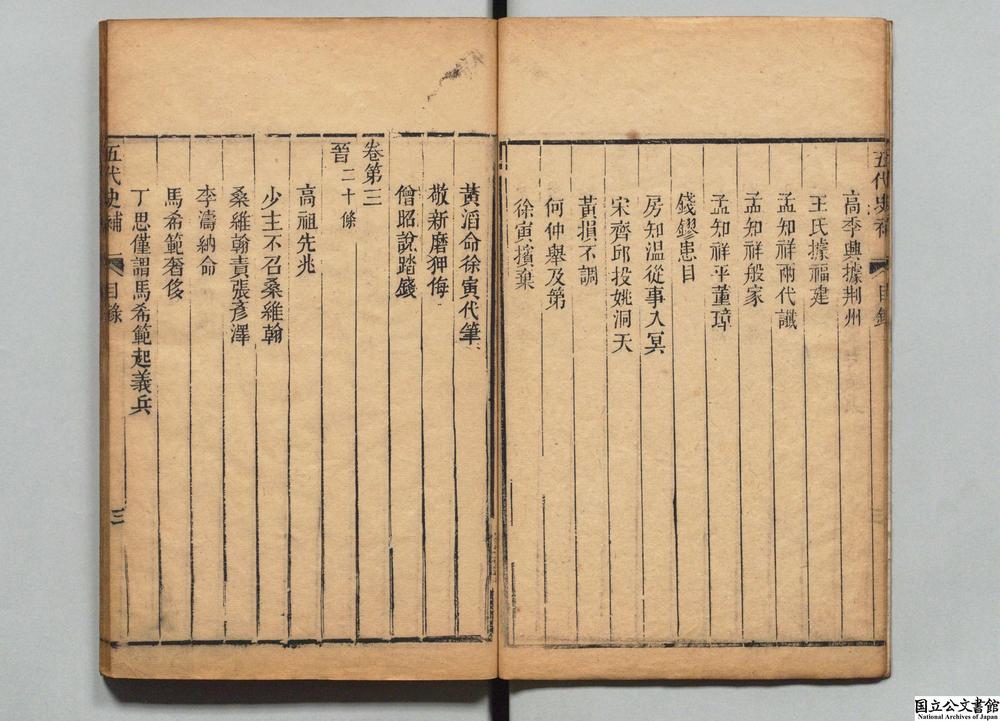 五代史補
目錄
高季興據荆州
王氏據福建
孟知祥兩代讖
孟知祥般家
孟知祥平董璋
錢鏐患目
房知溫從事入冥
宋齊邱投姚洞天
黃損不調
何仲舉及第
徐寅擯棄
黃滔命徐寅代筆
敬新磨狎侮
僧昭說踏錢
卷第三
晉二十條
高祖先兆
少主不召桑維翰
桑維翰責張彥澤
李濤納命
馬希範奢侈
丁思僅謂馬希範起義兵
五代史補
目錄
三
国立公文書館
National Archives of Japan